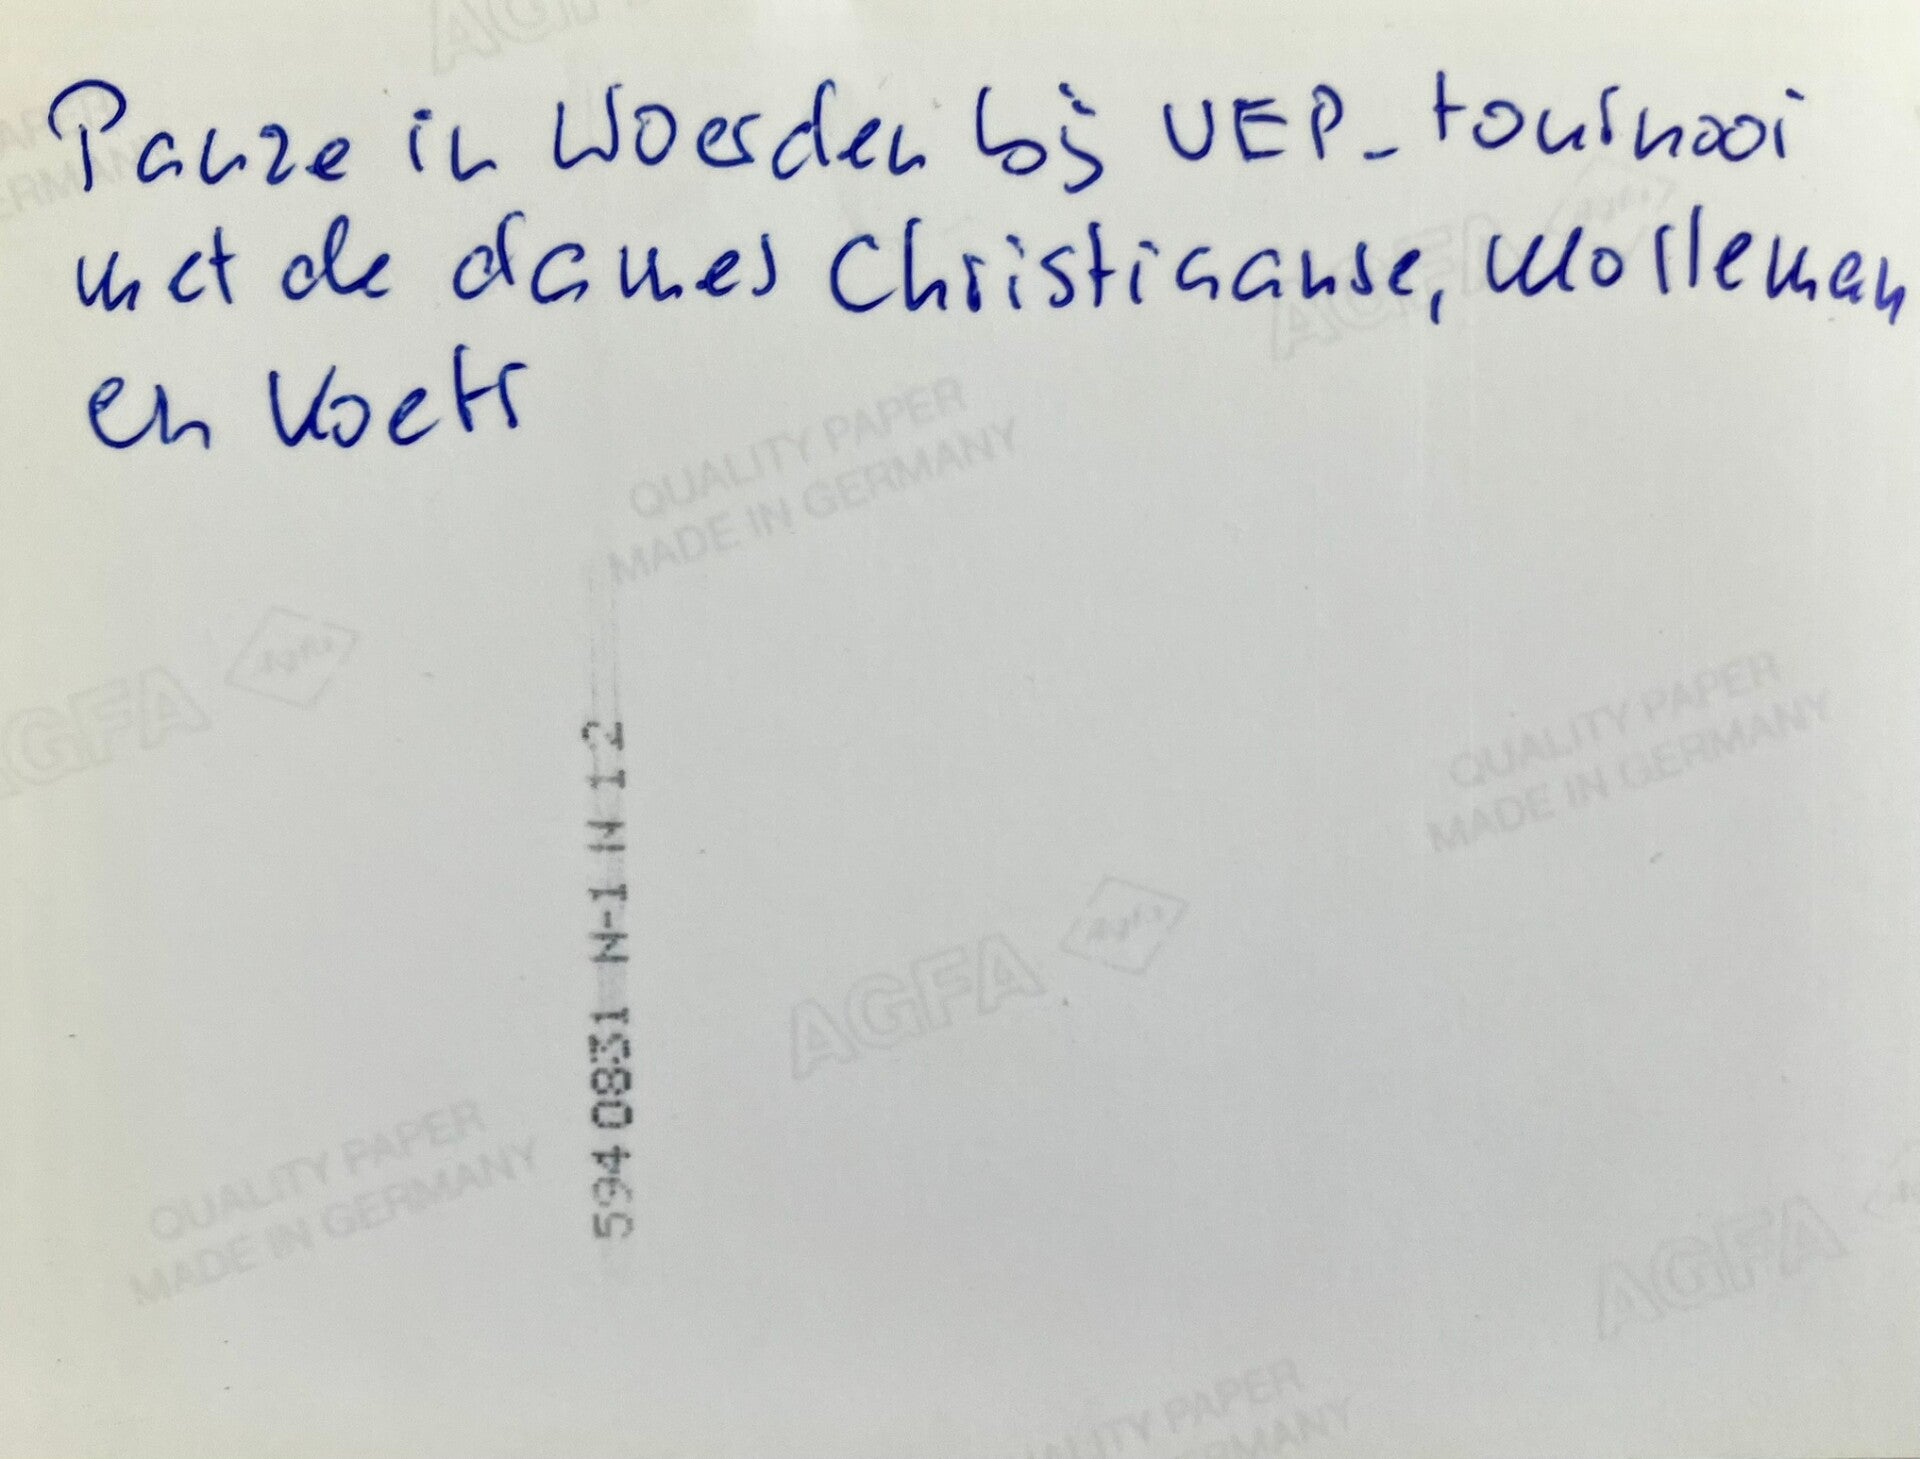 Pauze in Woerden bij VEP-tournooi
met de dames Christiaanse, Molleman
en Voets
594 0831 N-1 N 12
AGFA
QUALITY PAPER
MADE IN GERMANY
AGFA
QUALITY PAPER
MADE IN GERMANY
AGFA
QUALITY PAPER
MADE IN GERMANY
AGFA
QUALITY PAPER